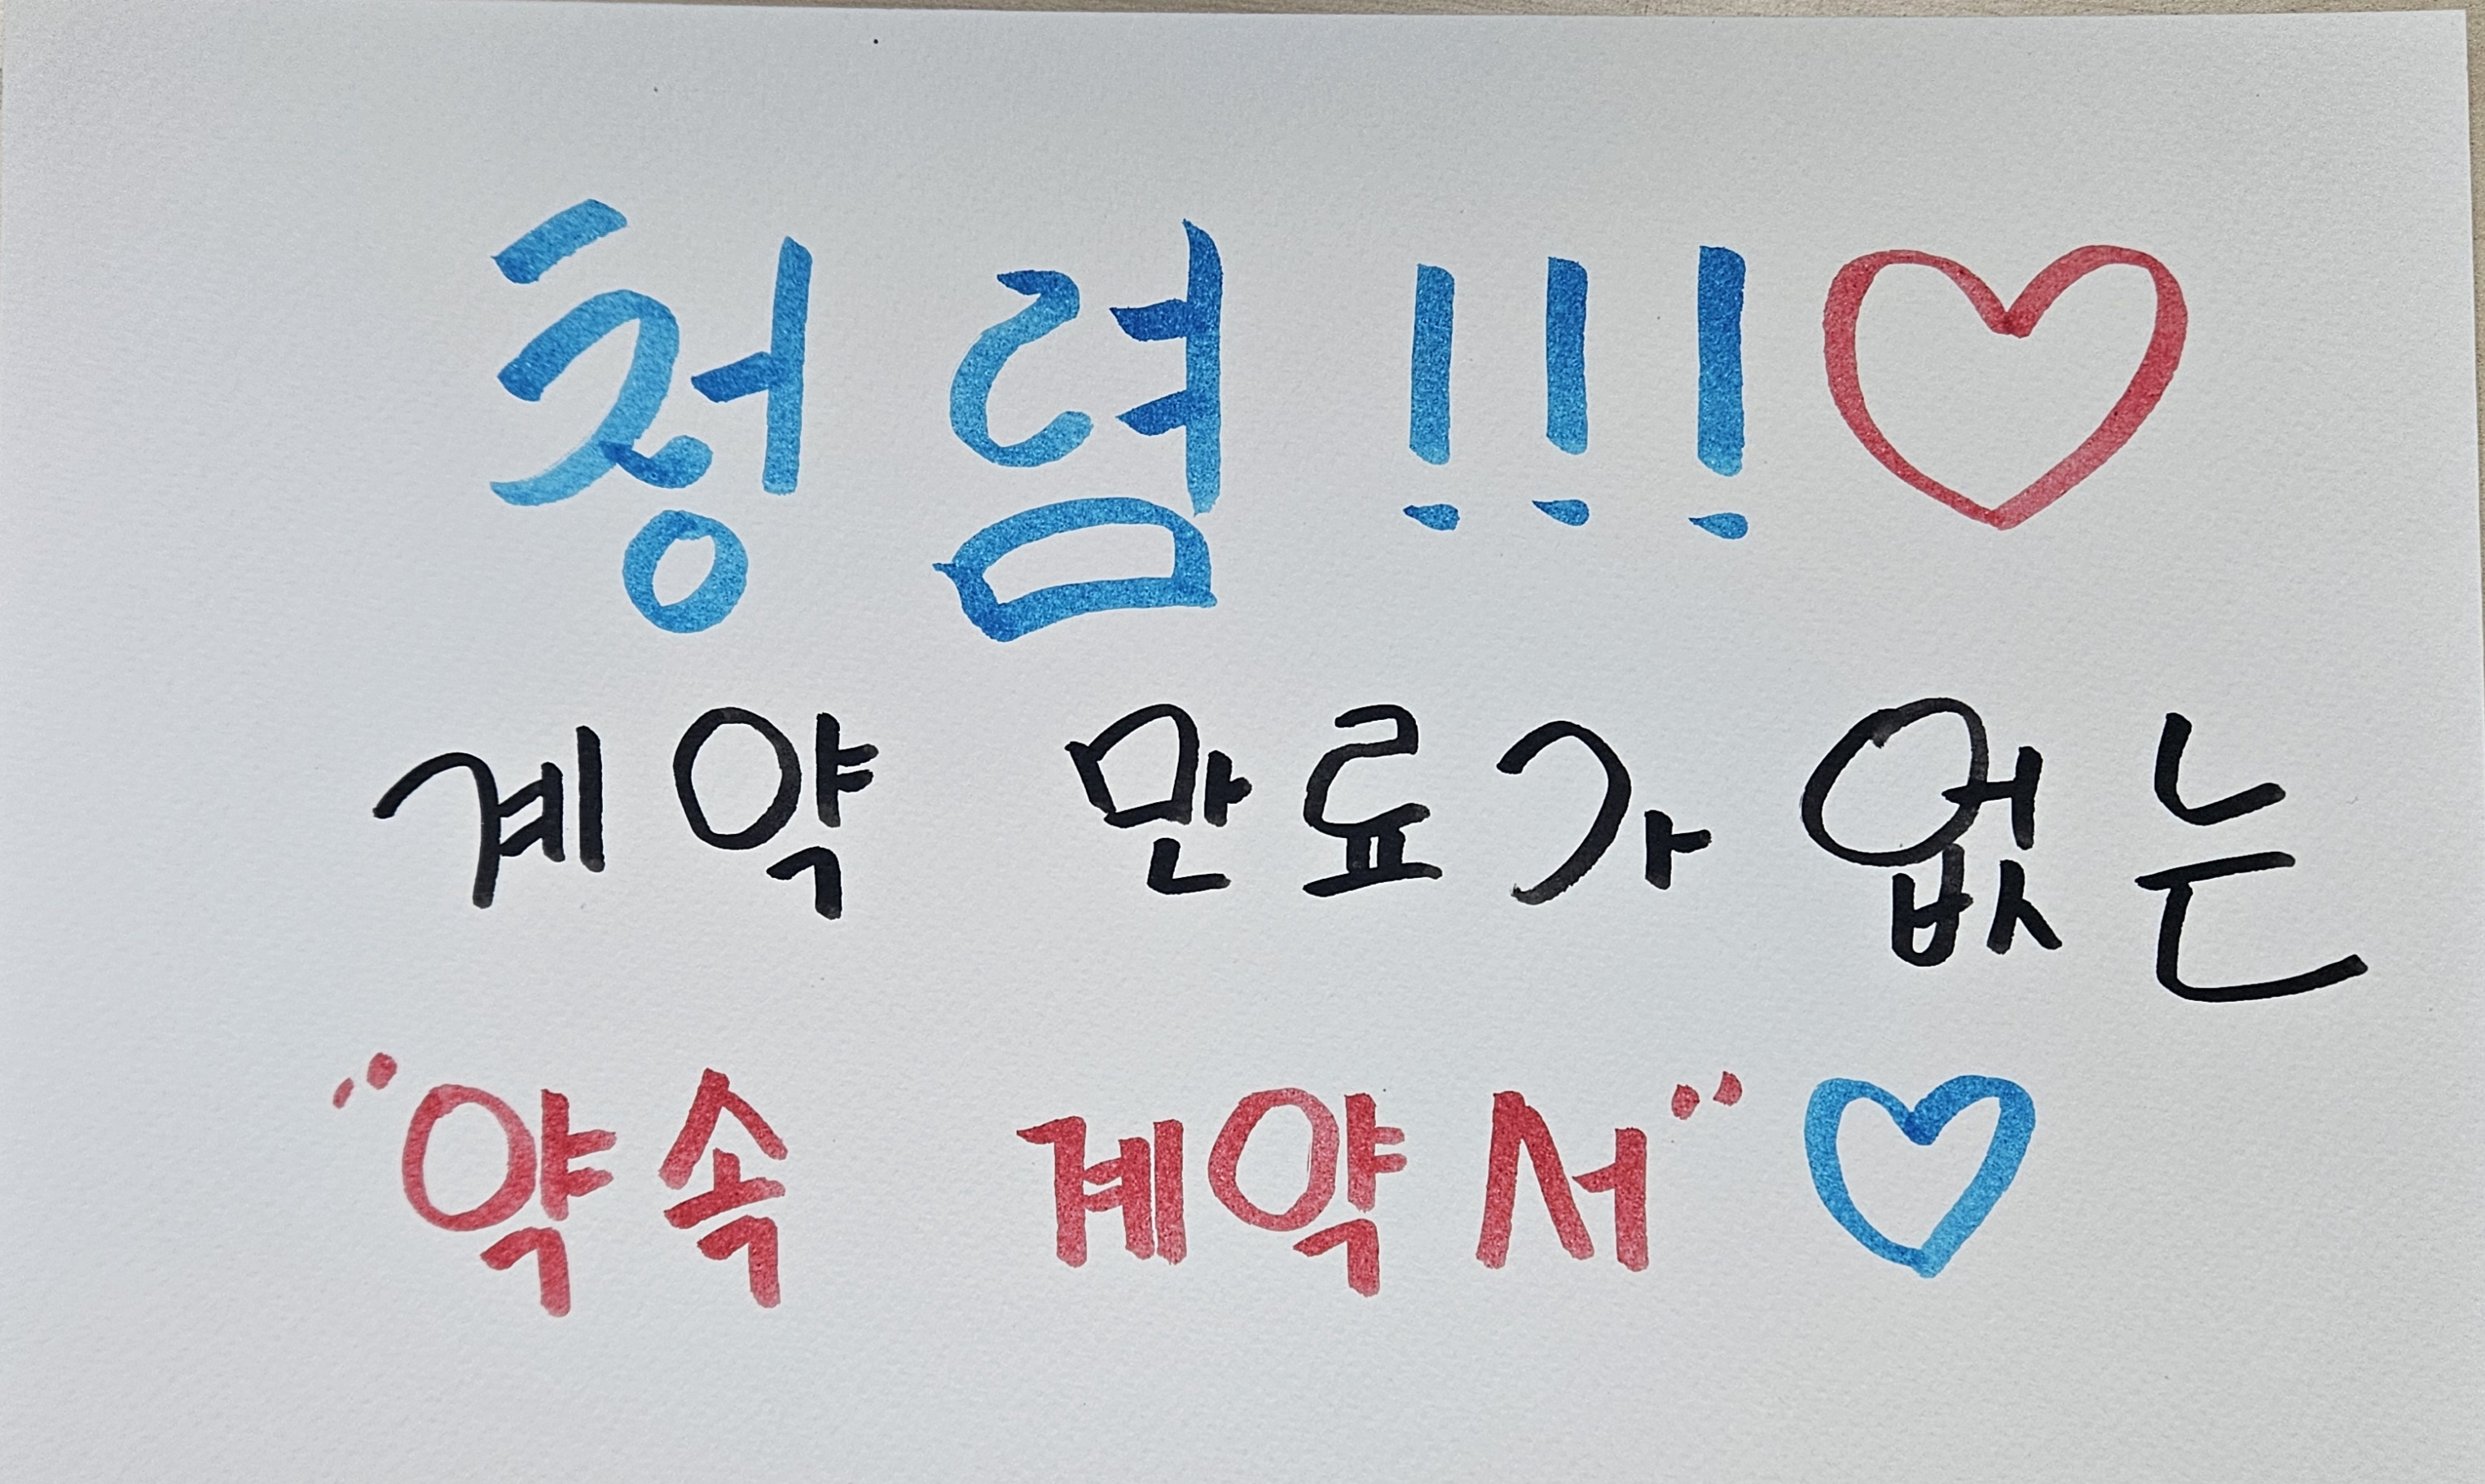 청렴!!!♡
계약 만료가 없는
"약속 계약서"♡